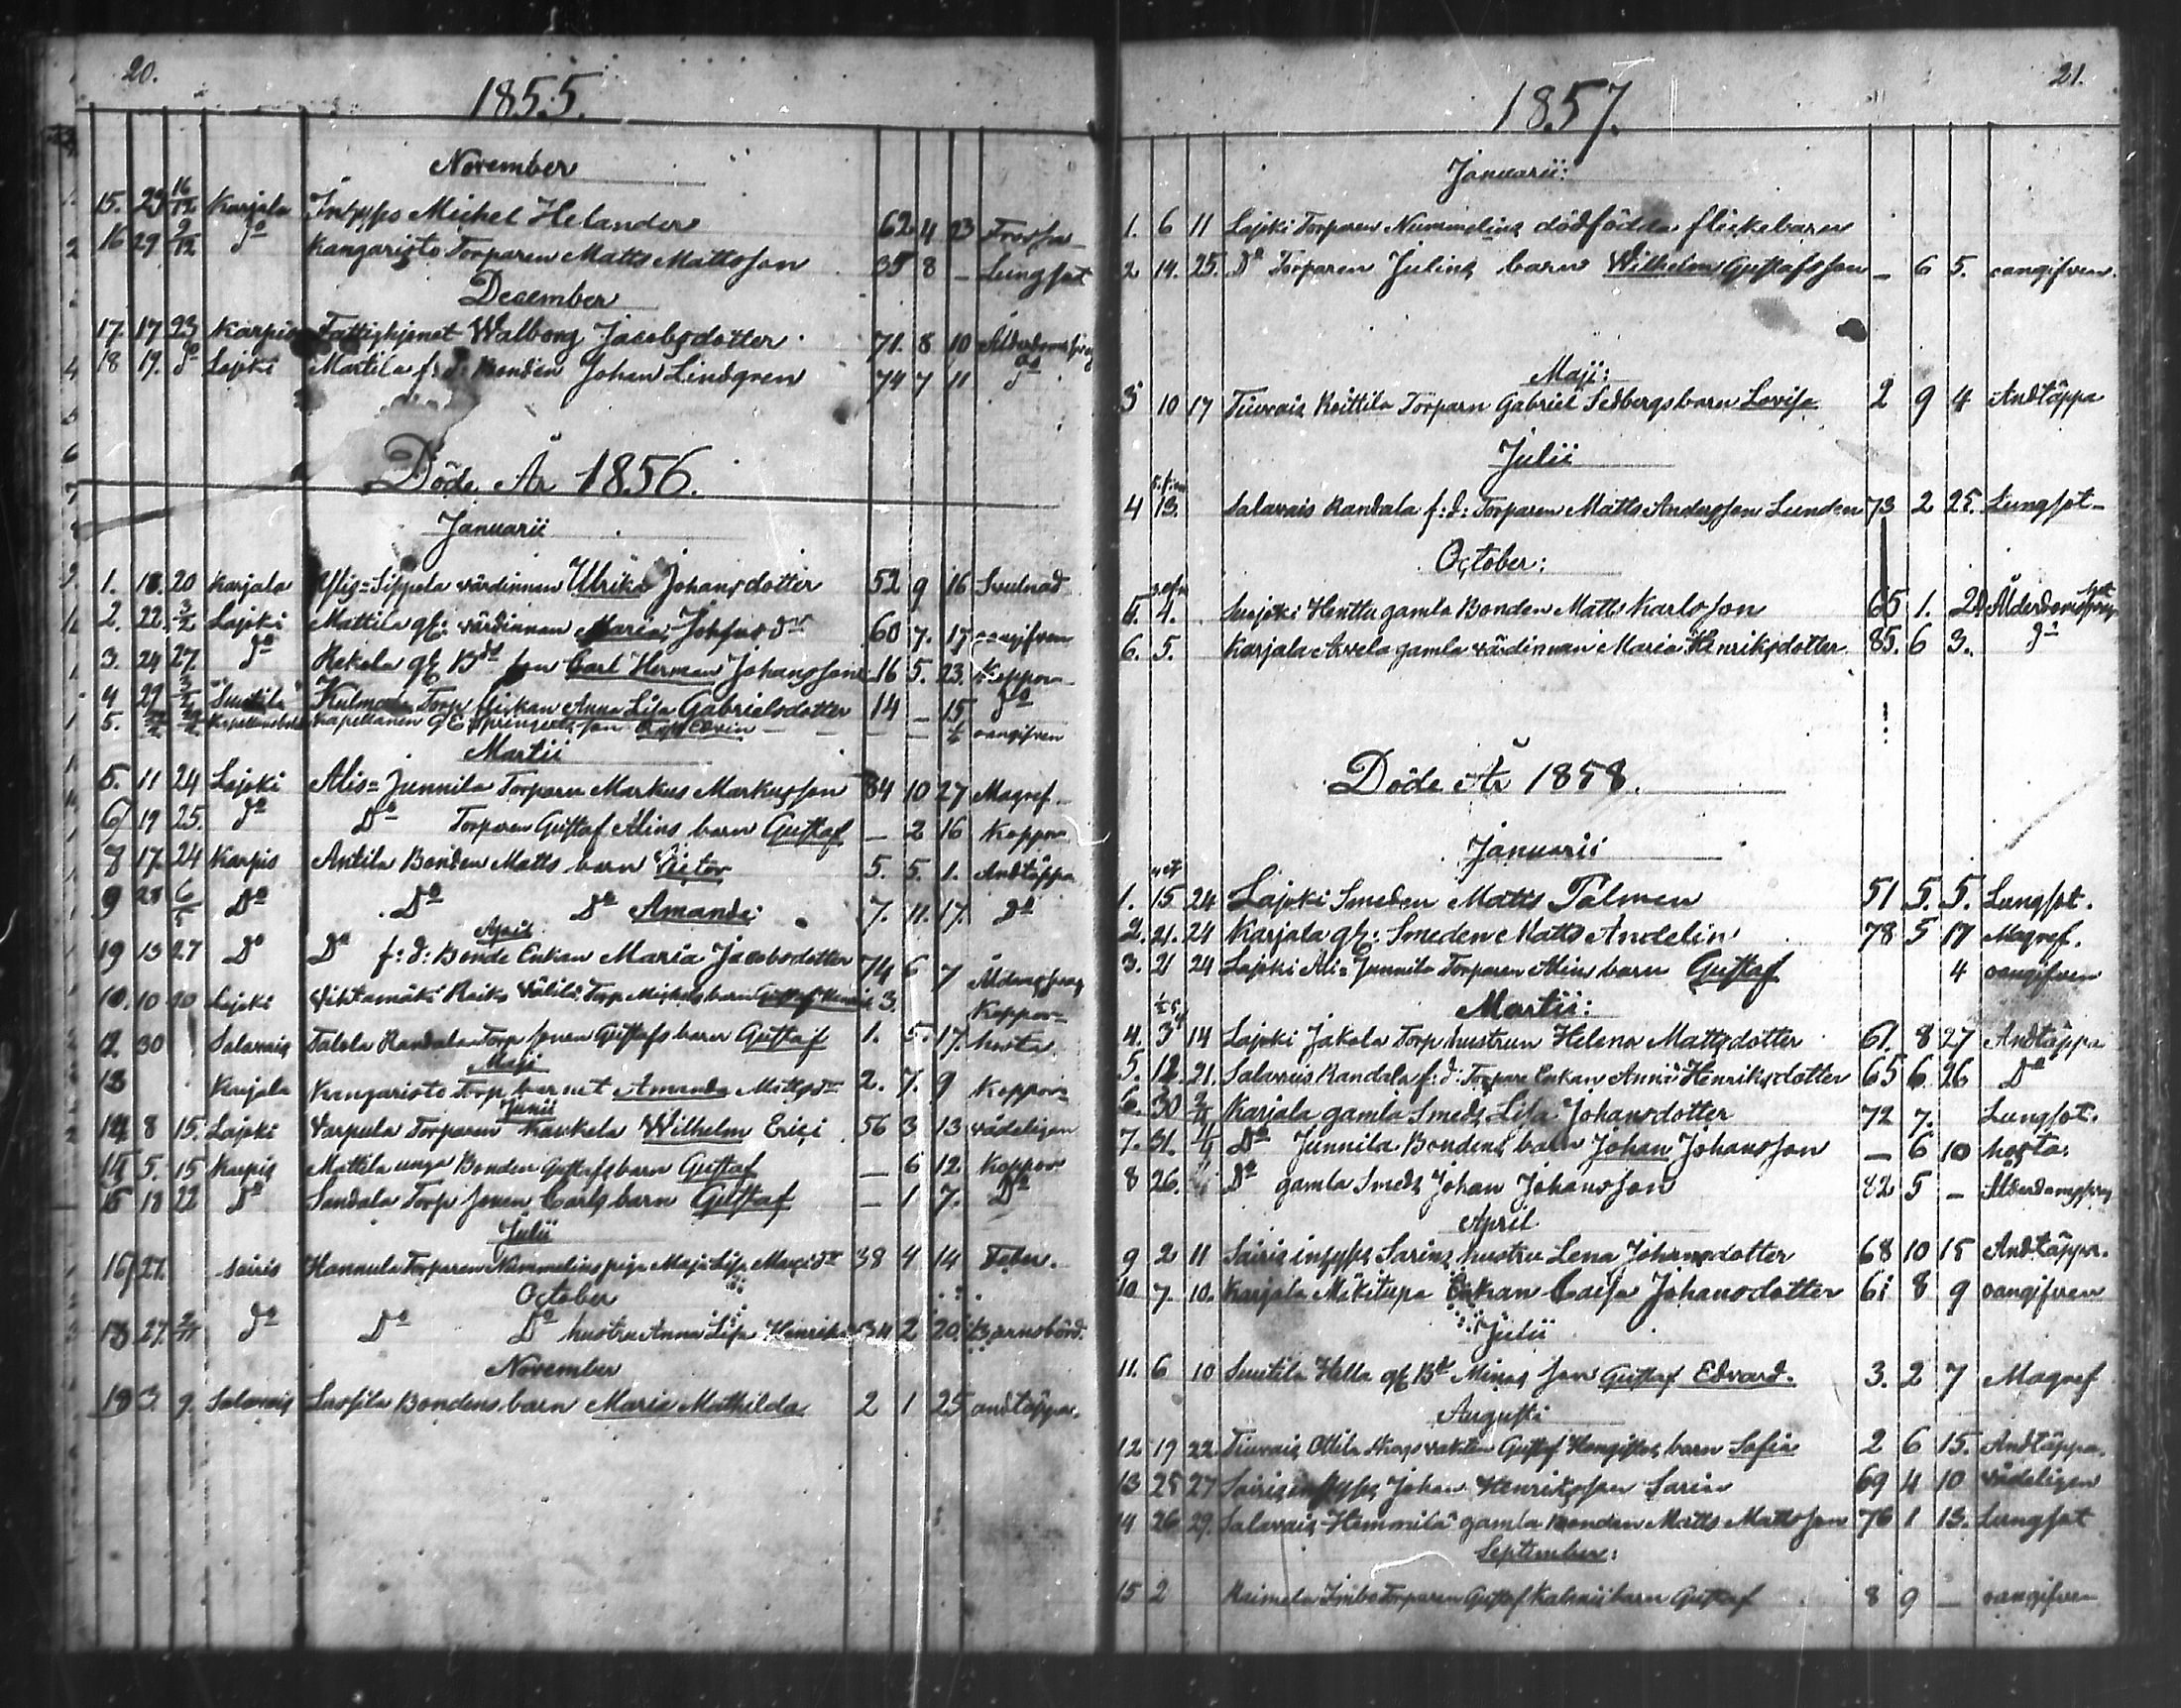 20.
1855.
November
15. 29 16/12 Karjala Inhyses Michel Helander 62 4 23 Frossa
16 29 9/12 do Kangaristo Torparen Matts Mattsson 35 8 – Lungsot
December
17. 17 23 Karpis Fattighjonet Walborg Jacobsdotter 71. 8 10
18 19. do Lajoki Mattila f: d: Bonden Johan Lindgren 74 7 11 do
Döde År 1856.
Januarii
1. 18. 20 Karjala Sippola värdinnan Ulrika Johansdotter 52 9 16 Svulnad
2. 22. 3/2 Lajoki Mattila gl: värdinnan Maria 60 7. 17 oangifven
3. 24 27. do Rekola Carl Herman Johansson 16 5. 23. Koppor
4 29 Suutila Torp flickan Anna Lisa Gabrielsdotter 14 – 15 do
5. Kapellanen Edvin – – oangifven
Martii
5. 11 24 Lajoki Alis=Junnila Torparn Markus Markusson 84 10 27 Magref
6 19 25. do Do Torparen Gustaf Alins barn Gustaf – 2 16 Koppor
8 17. 24 Karpis Antila Bonden Matts barn Victor 5. 5. 1. Andtäppa
9 28 6/5 Do Do Do Amanda 7. 11. 17. Do
April
19 13 27 Do Do f: d: Bonde Enkan Maria Jacobsdotter 74 6 7
10. 10 20 Lajoki Vihtamäki Raiko Torp barn Gustaf Henric 3. Koppor
12 30 Salavais Talola Randala Torp sonen Gustafs barn Gustaf 1. 5. 17. hosta
Maji
13 Karjala Kangaristo Torp barnet Amanda Mattsdr 2. 7. 9 Koppor
Junii
14 8 15. Lajoki Varpula Torparen Kaukola Wilhelm Erici 56 3 13 vådeligen
15 5. 15 Karpis Mattila unga Bonden Gustafs barn Gustaf – 6 12. Koppor
15 18 22 Do Sandala Torp sonen Carls barn Gustaf – 1 7. Do
Julii
16 27. Sairis Hannula Torparen Nummelins piga Maja Lisa 38 4 14 Feber.
October
18 27. 2/11 do Do Do hustru Anna Lisa 34 2 20. Barnsbörd.
November
19 3. 9. Salavais Sassila Bondens barn Maria Mathilda 2 1 25 andtäppa.
21.
1857.
Januarii:
1. 6 11 Lajoki Torparen Nummelins dödfödda flickebarn
2 14. 25. Do Torparen Julins barn Wilhelm Gustafsson – 6 5. oangifven.
Maji:
3 10 17 Tiuvais Keittila Torparn Gabriel Sedbergs barn Lovisa 2 9 4 Andtäppa
Julii
4 13. Salavais Randala f: d: Torparen Matts Andersson Lunden 73 2 25. Lungsot
October:
4. 4. Suojoki Henttu gamla Bonden Matts Karlsson 65 1. 20 Ålderdoms
6. 5. Karjala Avela gamla värdinnan Maria Henriksdotter. 85. 6 3. do
Döde År 1858.
Januarii
1. 15 24 Lajoki Smeden Matts Palmen 51 5. 5. Lungsot.
2. 21. 24 Karjala gl: Smeden Matts Andelin 78 5 17 Magref.
3. 21 24 Lajoki Ali=Junnila Torparen Alins barn Gustaf 4 oangifven
Martii:
4. 3 14 Lajoki Jakola Torp hustrun Helena Mattsdotter 61. 8 27 Andtäppa
5. 12. 21. Salavais Randala f: d: Torpare Enkan Anna Henriksdotter 65 6 26 Do
6. 30 Karjala gamla Smeds Lisa Johansdotter 72 7. Lungsot.
7. 31. 11/4 Do Junnila Bondens barn Johan Johansson – 6 10 hosta.
8 26. Do gamla Smeds Johan Johansson 82 5 –
April
9 2 11 Sairis inhyses Sarins hustru Lena Johansdotter 68 10 15 Andtäppa.
10 7. 10. Karjala Mäkitupa Enkan Caisa Johansdotter 61 8 9 oangifven
Julii
11. 6 10 Suutila Hella gl Bd Minas son Gustaf Edvard. 3. 2 7 Magref
Augusti
12 19 22. Tiuvais Ottila Skogsvakten Gustaf barn Sofia 2 6 15. Andtäppa.
13 25 27 Sairis inhyses Johan Henriksson Sarin 69 4 10 vådeligen
14 26 29. Salavais Hemmilä gamla Bonden Matts Mattsson 76 1 13. Lungsot
September:
15 2 Raimela Torparen Gustaf barn Gustaf 8 9 – oangifven